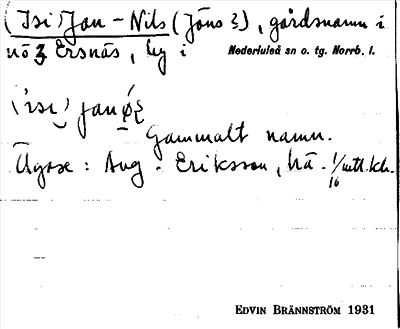 (Isi) Jan-Nils (Jöns), gårdsnamn i
nö 3 Ersnäs, by i Nederluleå sn o. tg. Norrb. l.
Gammalt namn.
Ägare: Aug. Eriksson, hä. 1/16 mtl. kr.
EDVIN BRÄNNSTRÖM 1931